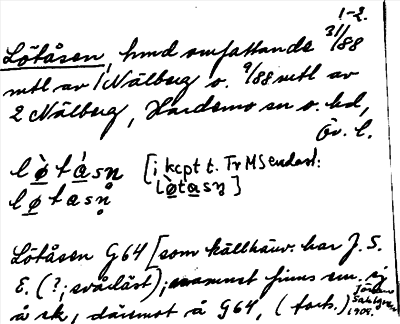 1-2.
Lötåsen, hmd omfattande 31/88
mtl av 1 Nälberg o. 9/88 mtl av
2 Nälberg, Hardemo sn o. hd,
Ör. l.
lø̀tá̱sn̥ [i kcpt t. Tr MS endast:
lø̱ta̱sn̥ lø̀ta̱sn]
Lötåsen G64 [som källhänv. har J. S.
E. (?; svårläst); namnet finns em. ej
å sk, däremot å G64, (forts.) Jöran Sahlgren
1909.